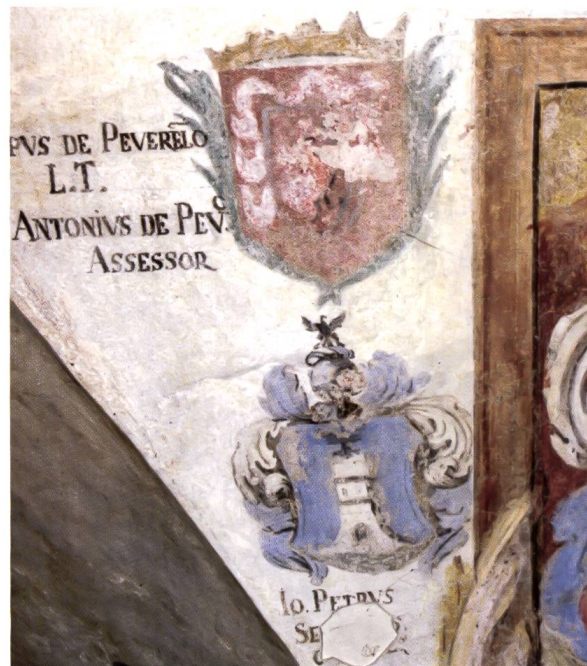 PVS DE PEVERELO
L.T.
ANTONIVS DE PEV.
ASSESSOR
IO. PETRVS
SE